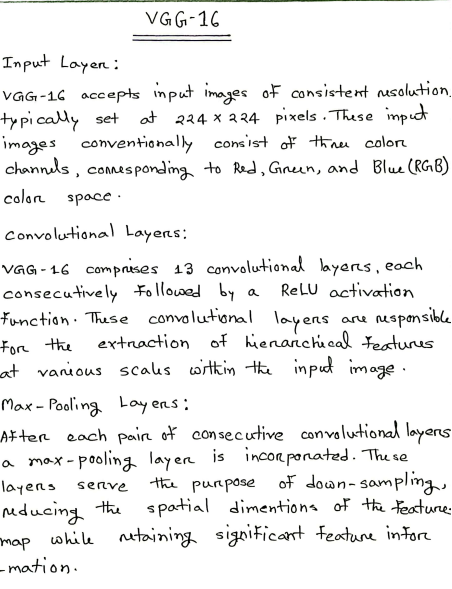 VGG-16
Input Layer:
VGG-16 accepts input images of consistent resolution,
typically set at 224 x 224 pixels. These input
images conventionally consist of three color
channels, corresponding to Red, Green, and Blue (RGB)
color space.
Convolutional Layers:
VGG-16 comprises 13 convolutional layers, each
consecutively followed by a ReLU activation
function. These convolutional layers are responsible
for the extraction of hierarchical features
at various scales within the input image.
Max-Pooling Layers:
After each pair of consecutive convolutional layers
a max-pooling layer is incorporated. These
layers serve the purpose of down-sampling,
reducing the spatial dimentions of the feature
map while retaining significant feature infor
-mation.